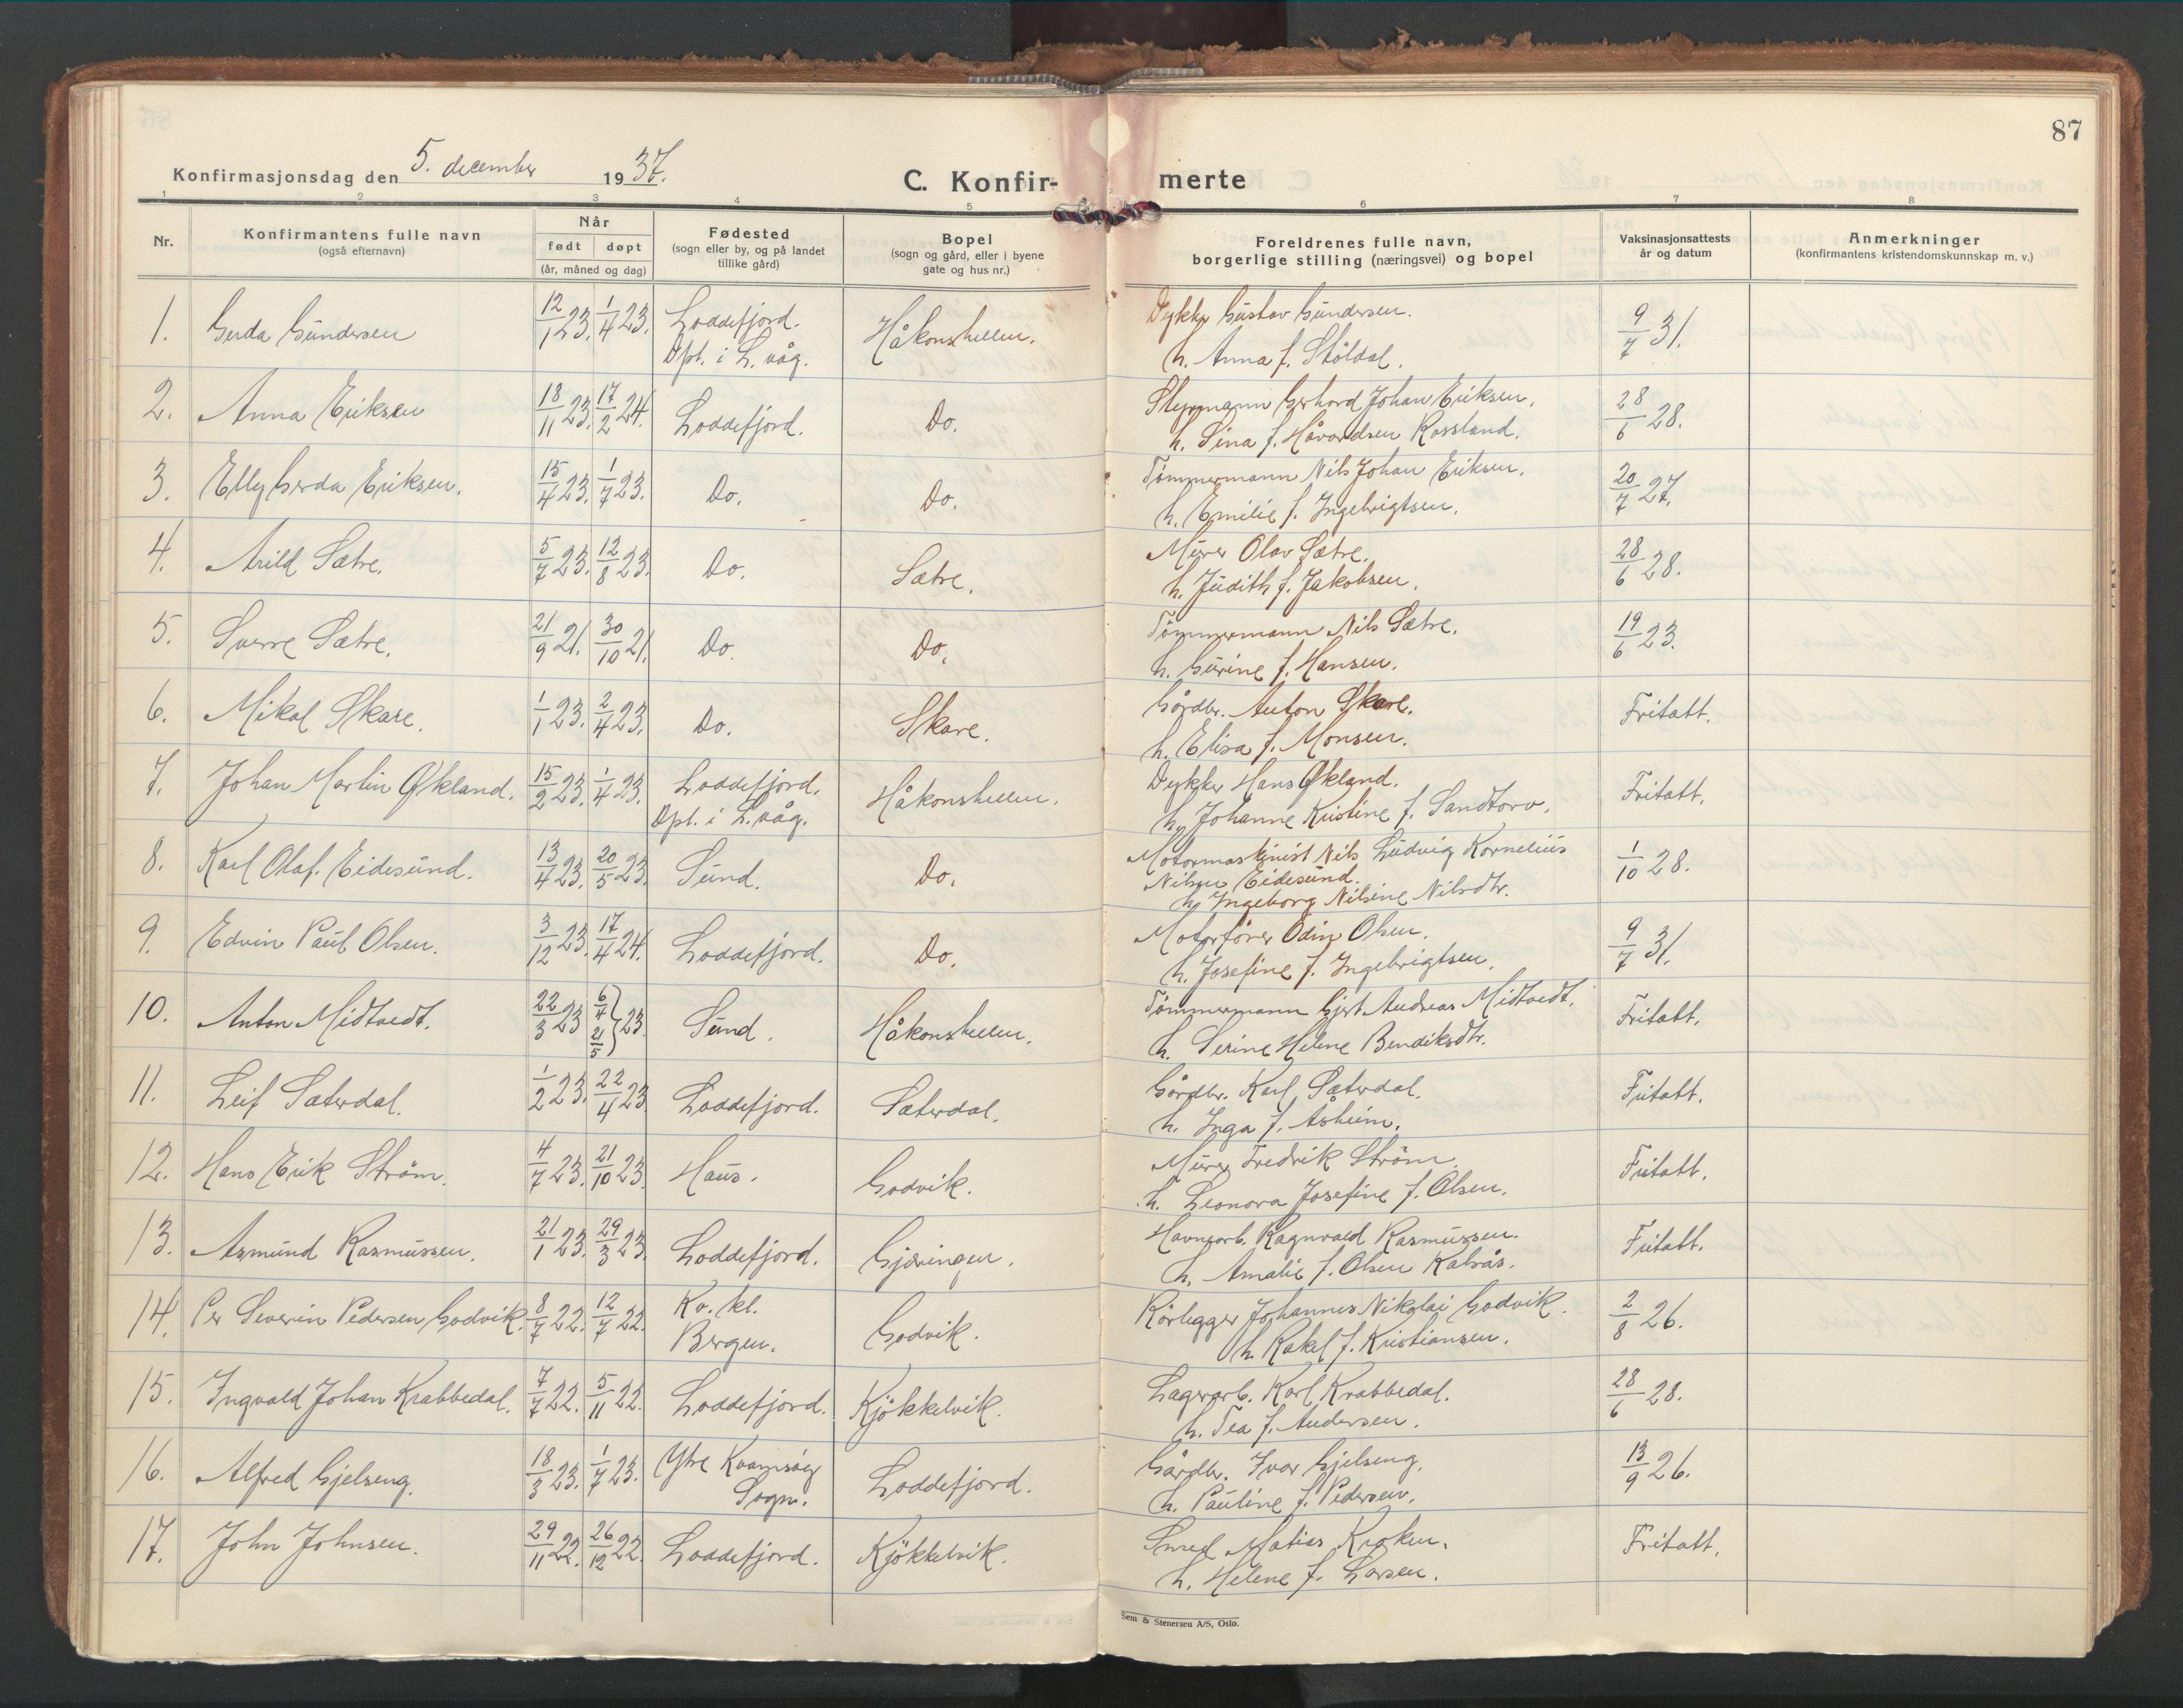 87
Konfirmasjonsdag den 5. december 1937.
C. Konfir- merte
1 2 3 4 5 6 7 8
Nr.
Konfirmantens fulle navn
(også efternavn)
Når
født døpt
(år, måned og dag)
Fødested
(sogn eller by, og på landet
tillike gård)
Bopel
(sogn og gård, eller i byene
gate og hus nr.)
Foreldrenes fulle navn,
borgerlige stilling (næringsvei) og bopel
Vaksinasjonsattests
år og datum
Anmerkninger
(konfirmantens kristendomskunnskap m. v.)
1. Gerda Gundersen 12/1 23. 1/4 23. Loddefjord. Håkonshellen. Dykker Gustav Gundersen. 9/7 31.
Dpt. i L.våg. h. Anna f. Stöldal.
2. Anna Eriksen 18/11 23. 17/2 24. Loddefjord. Do. Styrmann Gerhard Johan Eriksen. 28/6 28.
h. Sina f. Håvardsen Rossland.
3. Elly Gerda Eriksen. 15/4 23. 1/7 23. Do. Do. Tömmermann Nils Johan Eriksen. 20/7 27.
h. Emilie f. Ingebrigtsen.
4. Arild Sætre. 5/7 23. 12/8 23. Do. Sætre. Murer Olav Sætre. 28/6 28.
h. Judith f. Jakobsen.
5. Sverre Sætre. 21/9 21. 30/10 21. Do. Do. Tömmermann Nils Sætre. 19/6 23.
h. Gurine f. Hansen.
6. Mikal Skare. 1/1 23. 2/4 23. Do. Skare. Gårdbr. Anton Skare. Fritatt.
h. Elisa f. Monsen.
7. Johan Martin Økland. 15/2 23. 1/4 23. Loddefjord. Håkonshellen. Dykker Hans Økland. Fritatt.
Dpt. i L.våg. h. Johanne Kristine f. Sandtorv.
8. Karl Olaf. Eidesund. 13/4 23. 20/5 23. Sund. Do. Motormaskinist Nils Ludvig Kornelius 1/10 28.
Nilsen Eidesund.
h. Ingeborg Nilsine Nilsdtr.
9. Edvin Paul Olsen. 3/12 23. 17/4 24. Loddefjord. Do. Motorförer Odin Olsen. 9/7 31.
h. Josefine f. Ingebrigtsen.
10. Anton Midtvedt. 22/3 23 6/4 21/5 } 23. Sund. Håkonshellen. Tömmermann Gjert Andreas Midtvedt. Fritatt.
h. Serine Helene Bendiksdtr.
11. Leif Sæterdal. 1/2 23. 22/4 23. Loddefjord. Sæterdal. Gårdbr. Karl Sæterdal. Fritatt.
h. Inga f. Åsheim.
12. Hans Erik Ström. 4/7 23. 21/10 23. Haus. Godvik. Murer Fredrik Ström. Fritatt.
h. Leonora Josefine f. Olsen.
13. Asmund Rasmussen. 21/1 23. 29/3 23. Loddefjord. Gjæringen. Havnearb. Ragnvald Rasmussen. Fritatt.
h. Amalie f. Olsen Kalvås.
14. Per Severin Pedersen Godvik. 8/7 22. 12/7 22. Kv. kl. Godvik. Rörlegger Johannes Nikolai Godvik. 2/8 26.
Bergen. h. Rakel f. Kristiansen.
15. Ingvald Johan Krabbedal. 7/7 22. 5/11 22. Loddefjord. Kjökkelvik. Lagerarb. Karl Krabbedal. 28/6 28.
h. Tea f. Andersen.
16. Alfred Gjelseng. 18/3 23. 1/7 23. Ytre Kvamsöy Loddefjord. Gårdbr. Ivar Gjelseng. 13/9 26.
Sogn. h. Pauline f. Pedersen.
17. John Johnsen. 29/11 22. 26/12 22. Loddefjord. Kjökkelvik. Smed Matias Kroken. Fritatt.
h. Helene f. Larsen.
Sem & Stenersen A/S, Oslo.